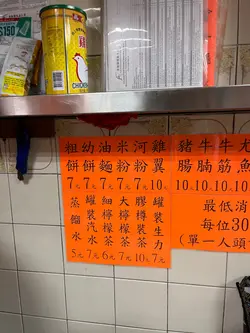 粗餅7元
幼餅7元
油麵7元
米粉7元
河粉7元
雞翼10元
蒸餾水5元
罐裝汽水7元
細檸檬茶6元
大檸檬茶7元
膠樽裝茶10元
罐裝生力
豬腸10元
牛腩10元
牛筋10元
最低消
每位30
(單一人頭
CHICKEN